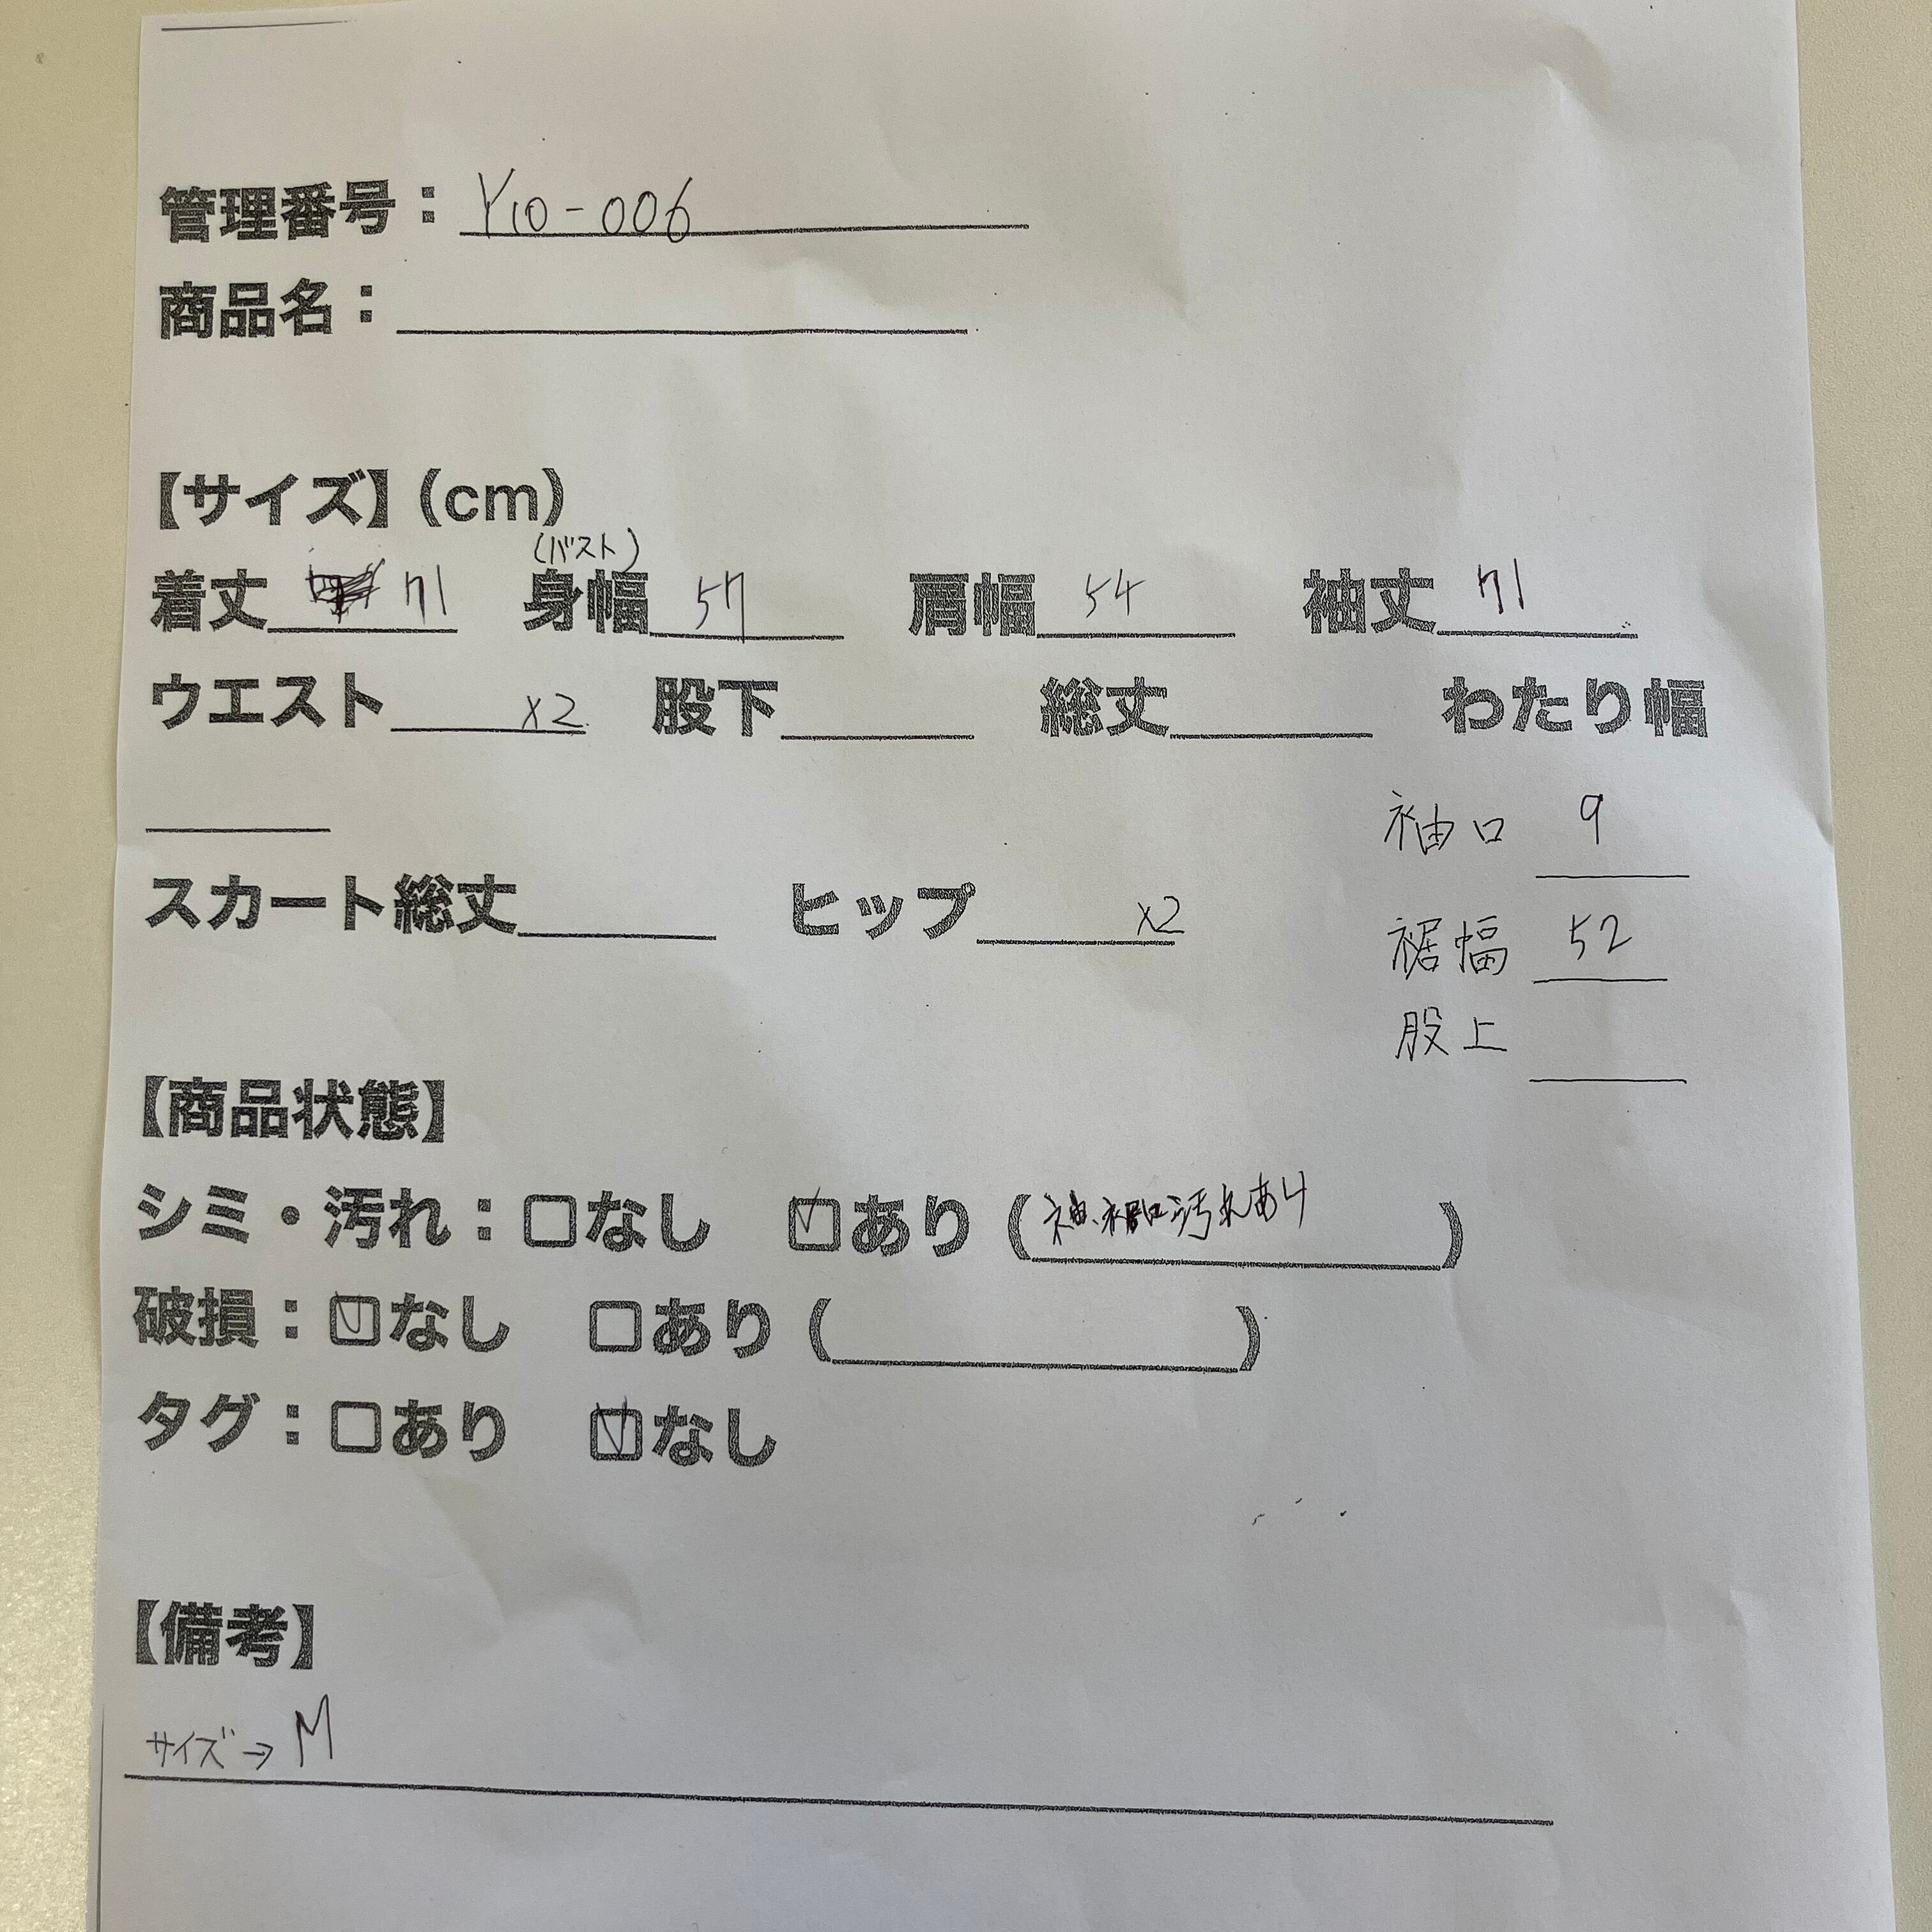 管理番号：Y10-006
商品名：
【サイズ】(cm)
(バスト)
着丈 71 身幅 57 肩幅 54 袖丈 71
ウエスト x2 股下 総丈 わたり幅
袖口 9
スカート総丈 ヒップ x2
裾幅 52
股上
【商品状態】
シミ・汚れ：□なし ☑あり(袖、汚れあり)
破損：☑なし □あり( )
タグ：□あり ☑なし
【備考】
サイズ→M